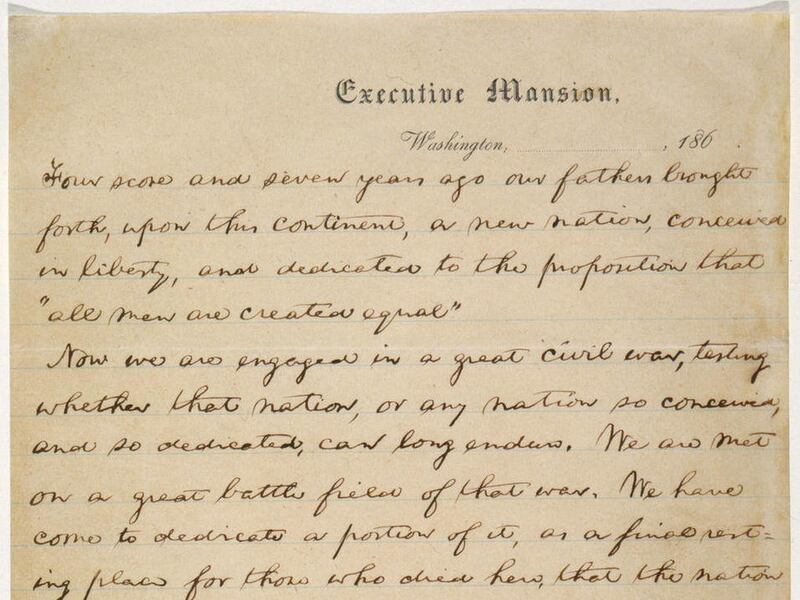 Executive Mansion,
Washington, , 186 .
Four score and seven years ago our fathers brought
forth, upon this continent, a new nation, conceived
in liberty, and dedicated to the proposition that
"all men are created equal"
Now we are engaged in a great civil war, testing
whether that nation, or any nation so conceived,
and so dedicated, can long endure. We are met
on a great battle field of that war. We have
come to dedicate a portion of it, as a final rest=
ing place for those who died here, that the nation